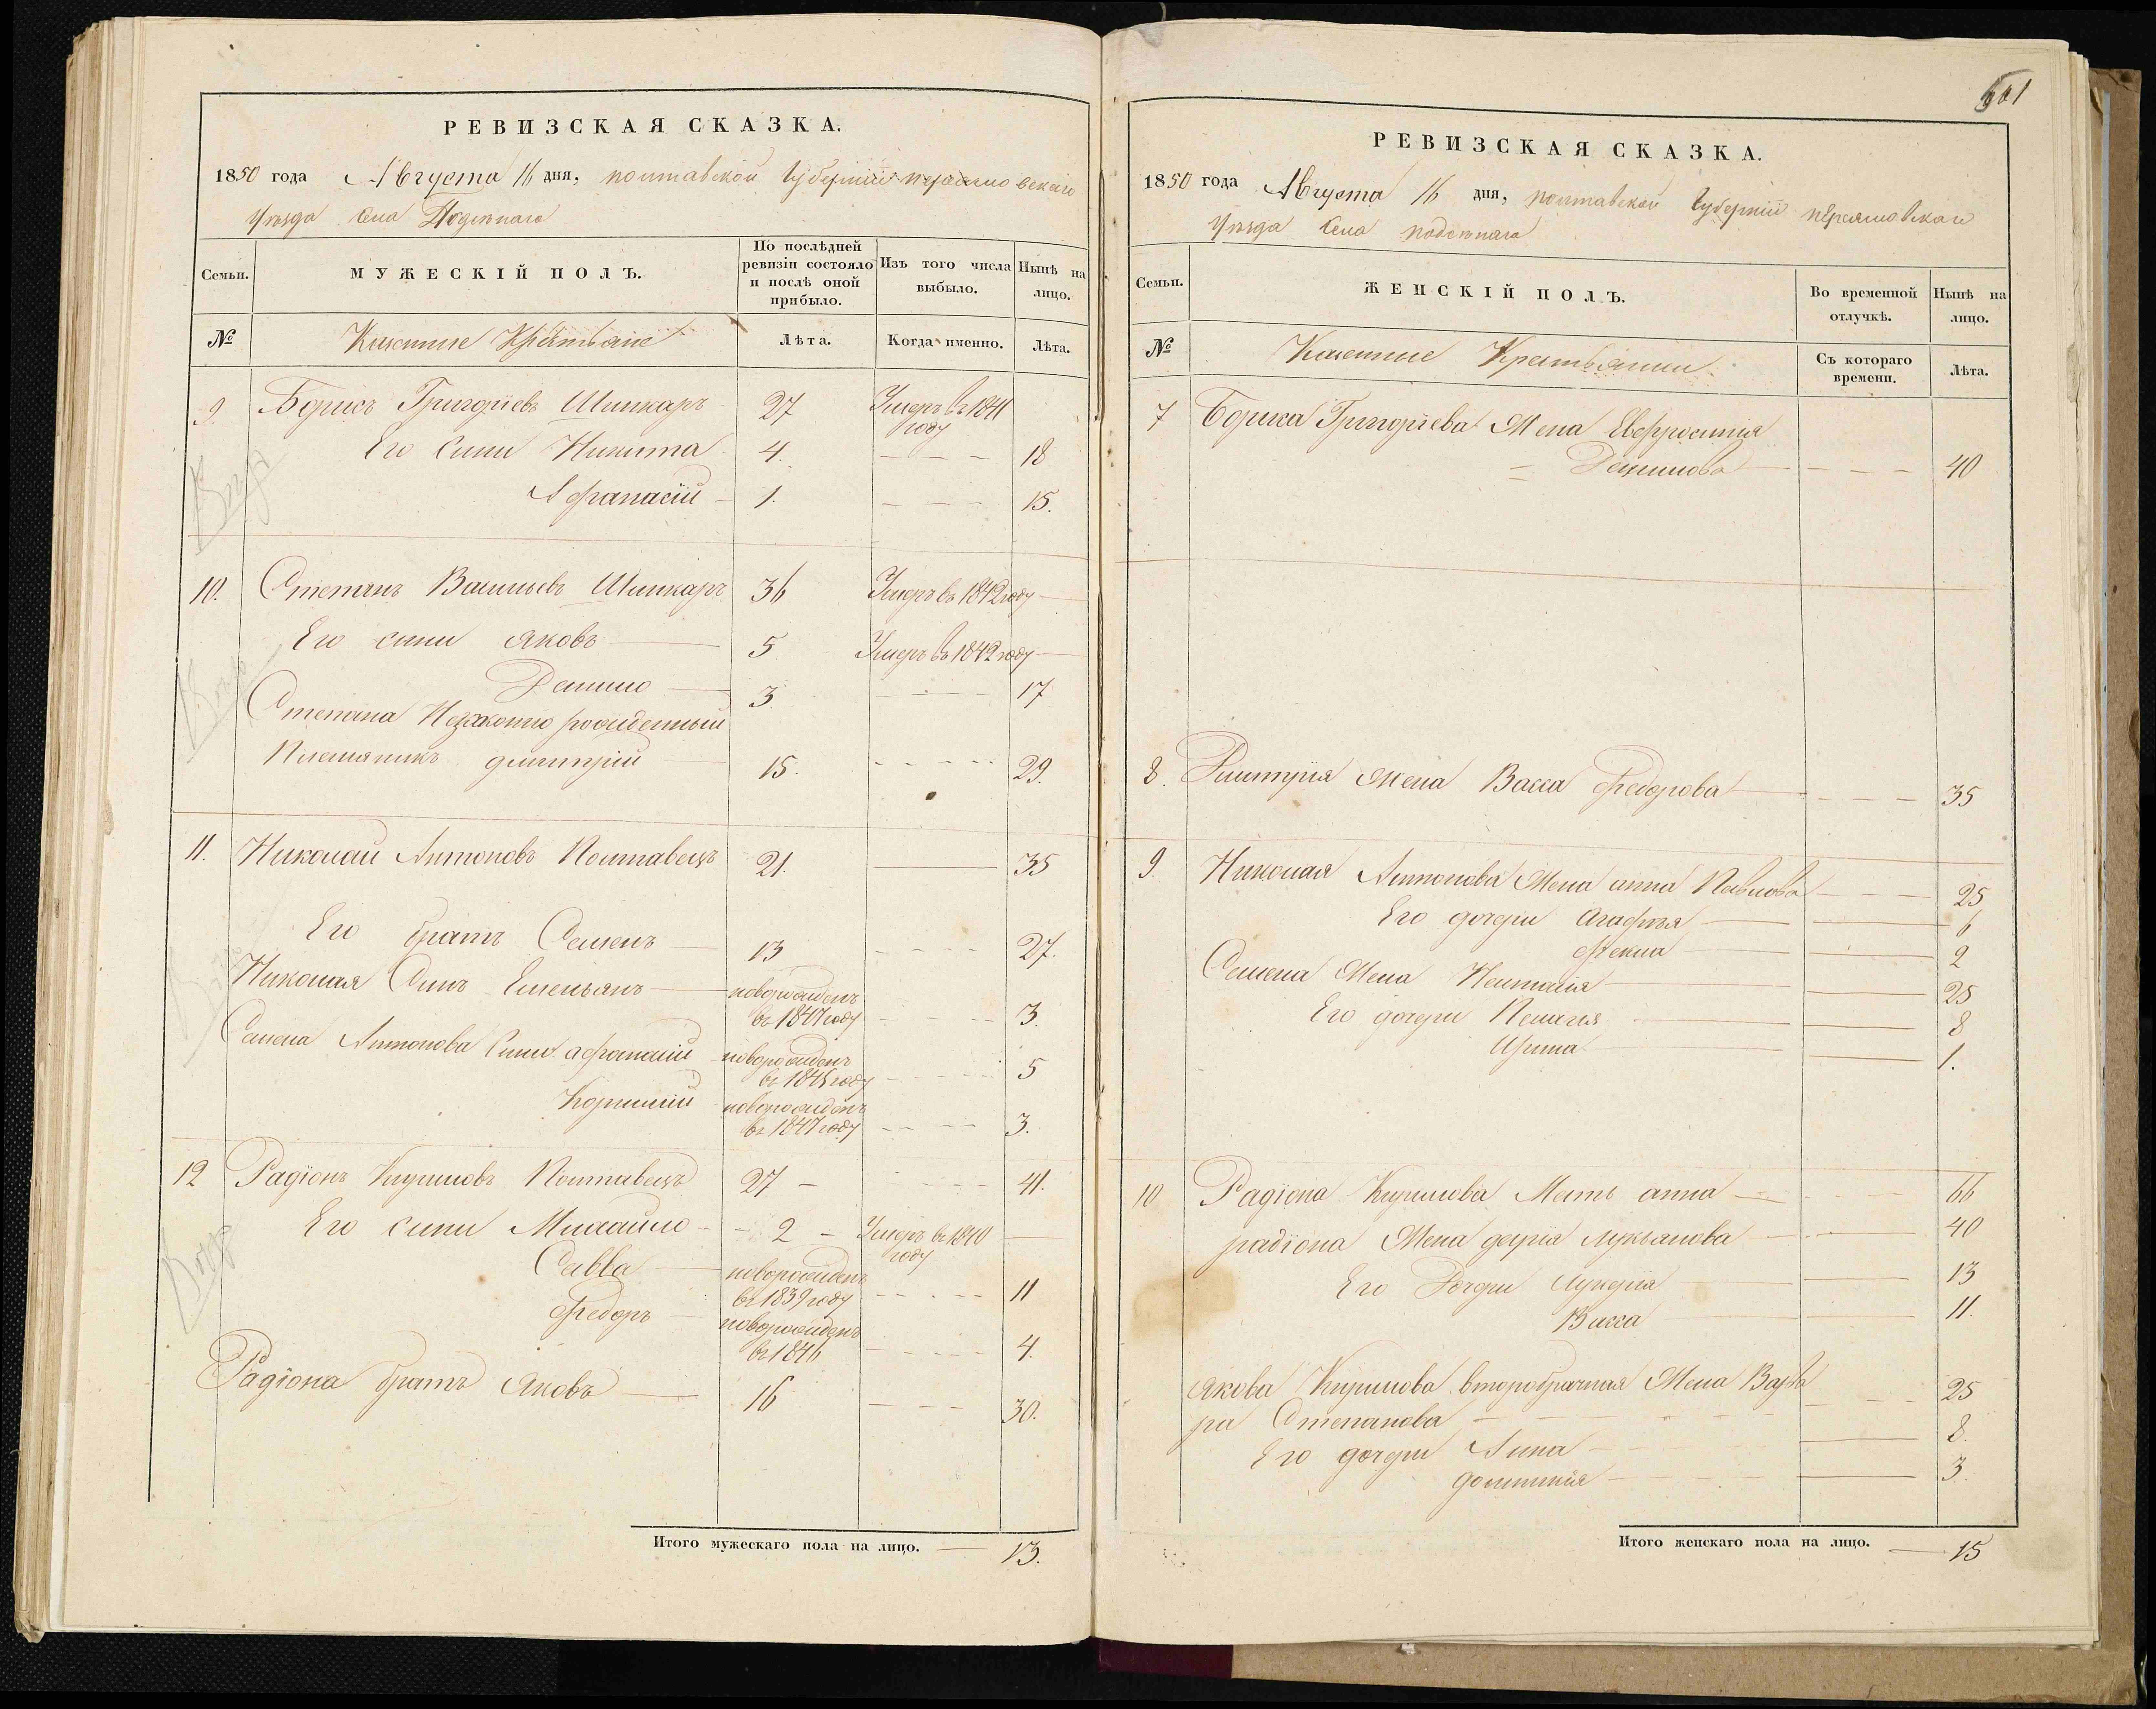 РЕВИЗСКАЯ СКАЗКА.
1850 года Августа 16 дня, полтавской губерніи переяславскаго
Уѣзда Села
Семьи.
МУЖЕСКІЙ ПОЛЪ.
По послѣдней ревизіи состояло и послѣ оной прибыло.
Изъ того числа выбыло.
Нынѣ на лицо.
№
Казенные Крестьяне
Лѣта.
Когда именно.
Лѣта.
9. Борисъ Григоріевъ Шинкаръ 27 Умеръ въ 1841 году
Его Сини Никита 4. 18
Афанасій 1. 15.
10. Степанъ Васильевъ Шинкаръ 36 Умеръ въ 1842 году
Его сини Яковъ 5 Умеръ въ 1842 году
Данило 3 17
Степана Незаконно рожденный
Племяникъ дмитрій 15. 29.
11. Николай Антоновъ Полтавецъ 21. 35
Его братъ Семенъ 13 27.
Николая Синъ Емельянъ новорожденъ въ 1847 году 3.
Семена Антонова Сини афанасій новорожденъ въ 1845 году 5
Корнилій новорожденъ въ 1847 году 3.
12 Радіонъ Кириловъ Полтавецъ 27 41.
Его сини Михайло 2 Умеръ въ 1840 году
Савва новорожденъ въ 1839 году 11
Федоръ новорожденъ въ 1846 4.
Радіона братъ Яковъ 16 30.
Итого мужескаго пола на лицо. 13.
РЕВИЗСКАЯ СКАЗКА.
1850 года Августа 16 дня, полтавской губерніи переяславскаго
Уѣзда Села
Семьи.
ЖЕНСКІЙ ПОЛЪ.
Во временной отлучкѣ.
Нынѣ на лицо.
№
Казенные Крестьянки
Съ котораго времени.
Лѣта.
7 Бориса Григоріева Жена Евфросинія
Данилова 40
8. Дмитрія Жена Васса Федорова 35
9 Николая Антонова Жена анна Павлова 25
Его дочери Агафія 6
Фекла 2
Семена Жена Наталія 25
Его дочери Пелагея 8
Ирина 1.
10 Радіона Кирилова Мать анна 66
радіона Жена дарія лукьянова 40
Его Дочери Лукерія 13
Васса 11.
Якова Кирилова второбрачная Жена Варва
ра Степанова 25
Его дочери Анна 8.
домникія 3.
Итого женскаго пола на лицо. 15